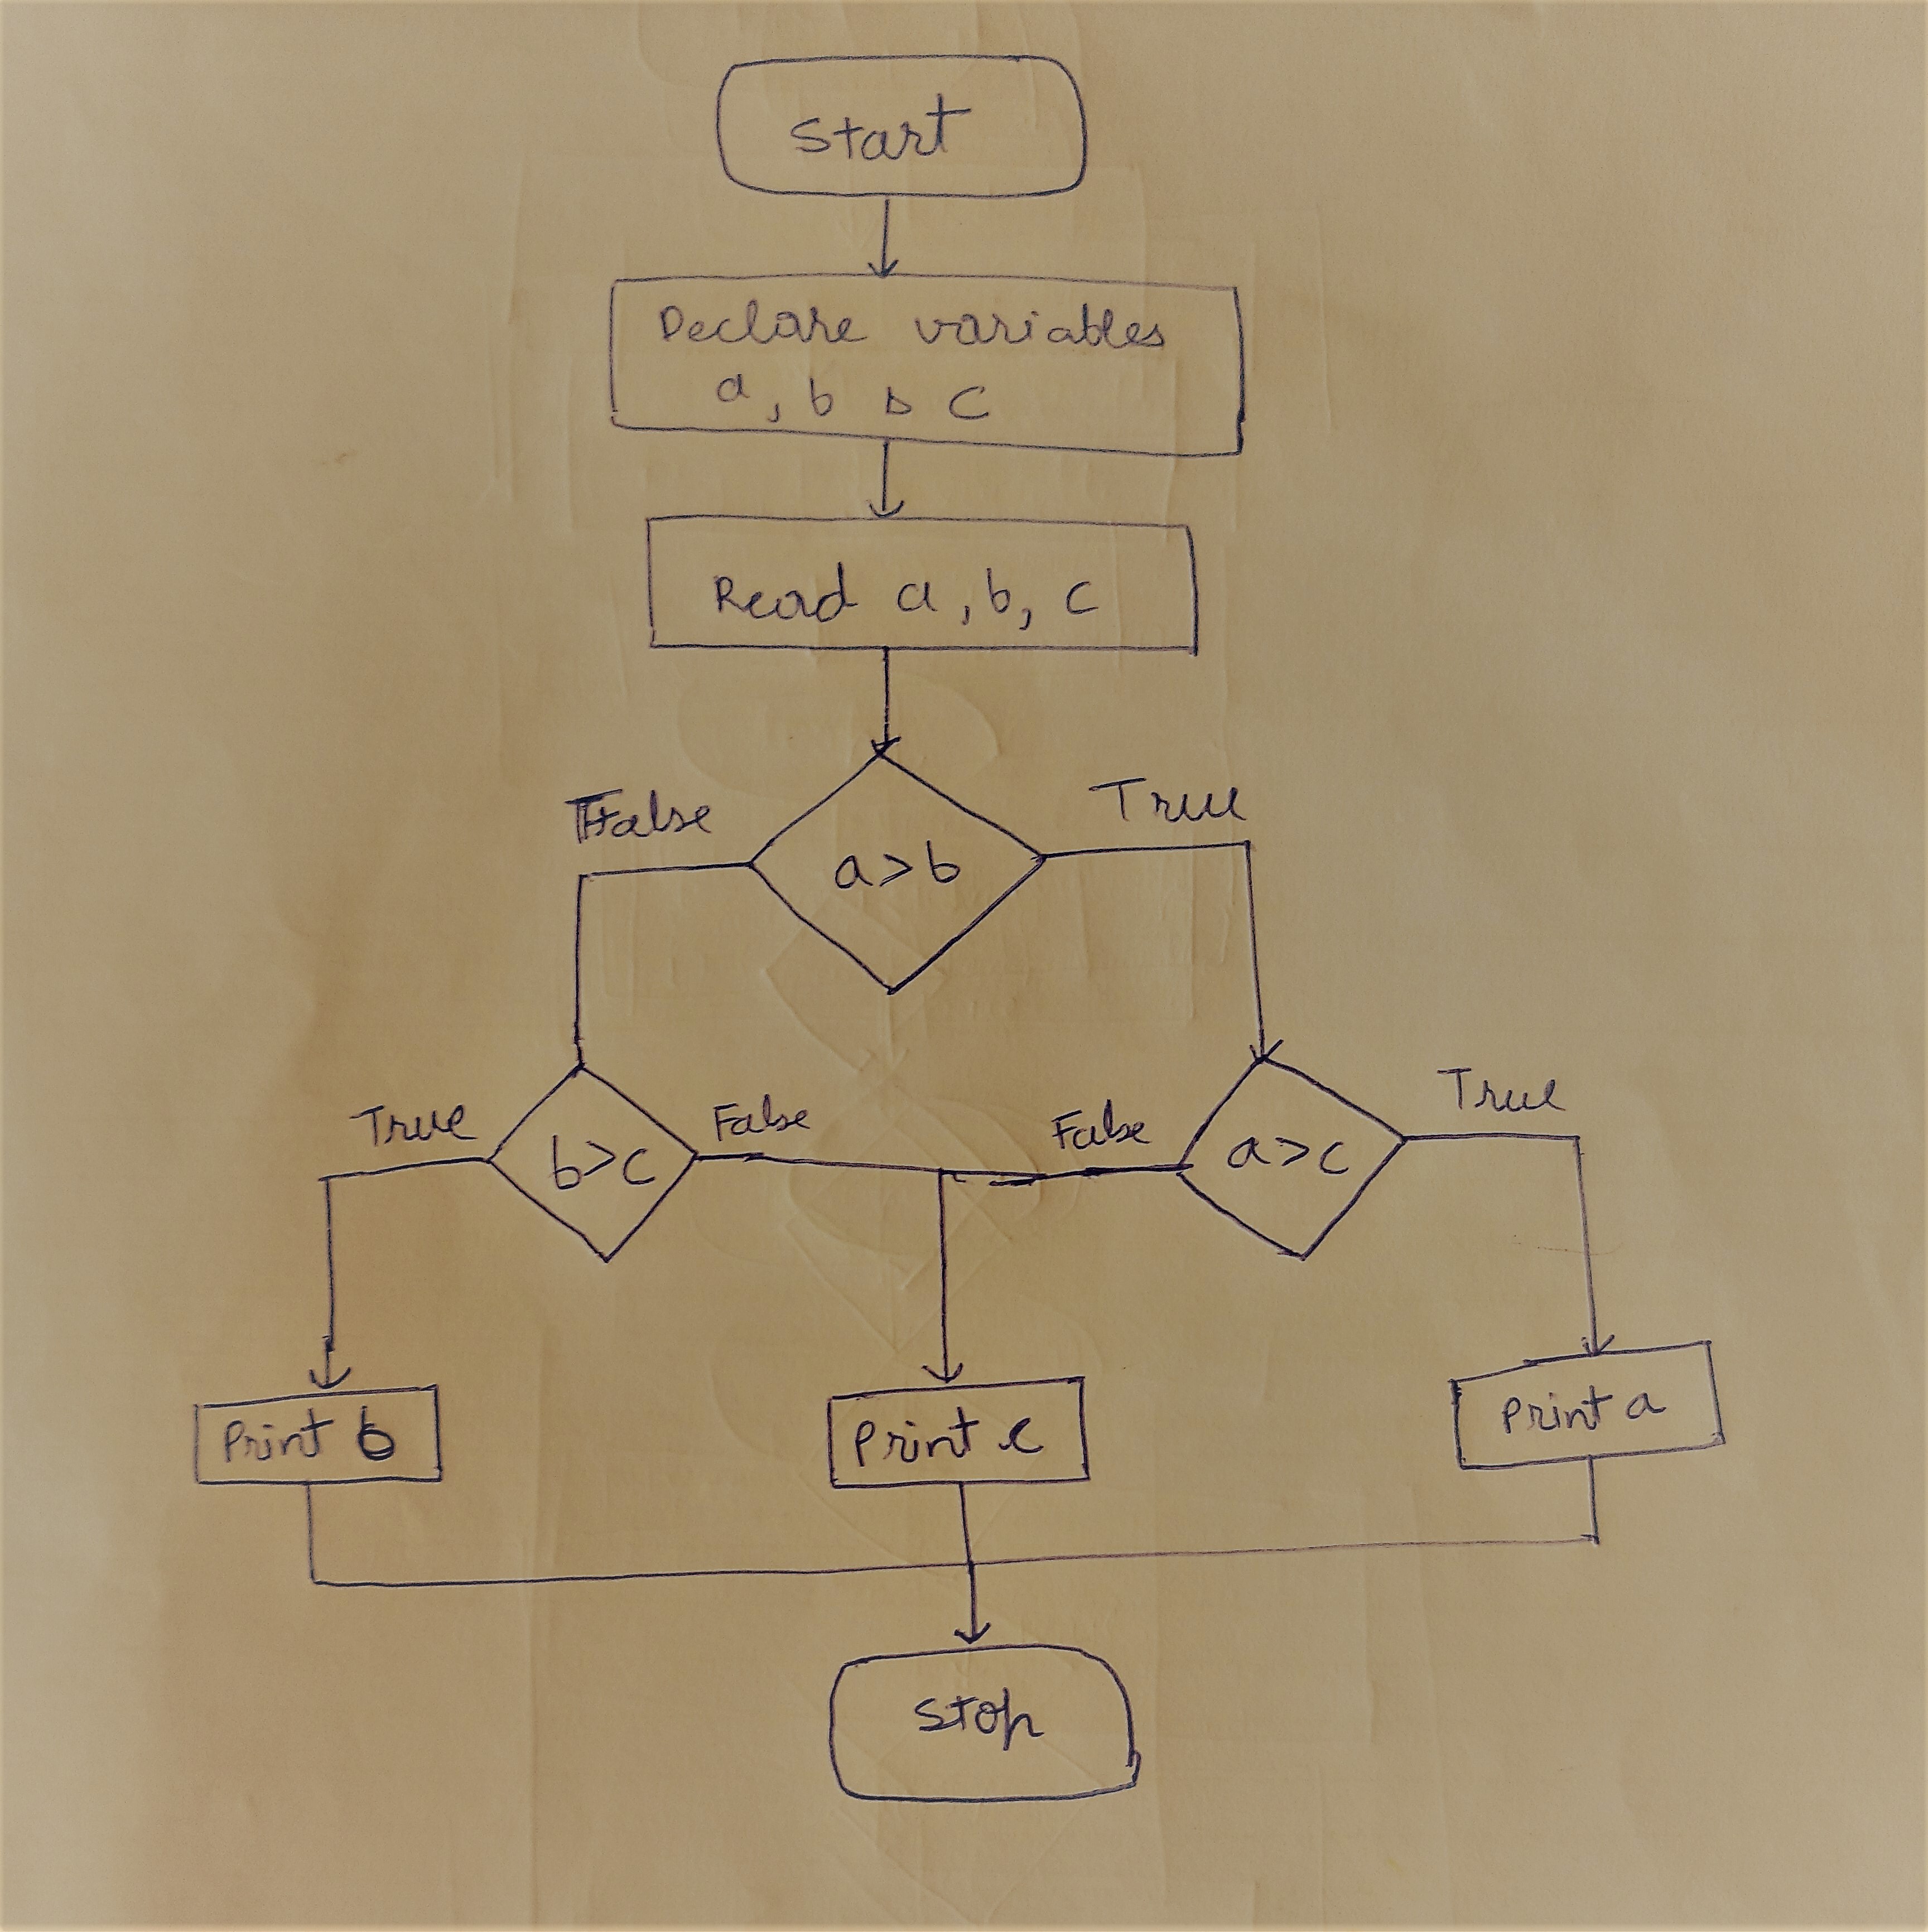 Start
Declare variables
a, b & c
Read a, b, c
False
True
a>b
True
b>c
False
False
a>c
True
Print b
Print c
Print a
Stop